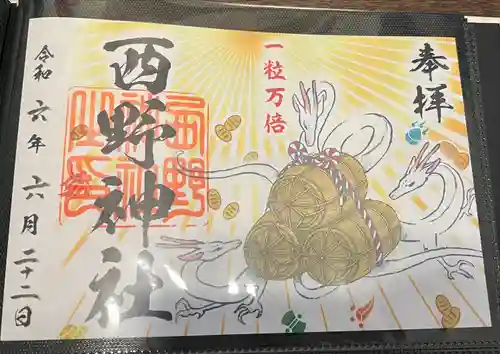 奉拝
一粒万倍
西野神社
令和六年六月二十二日